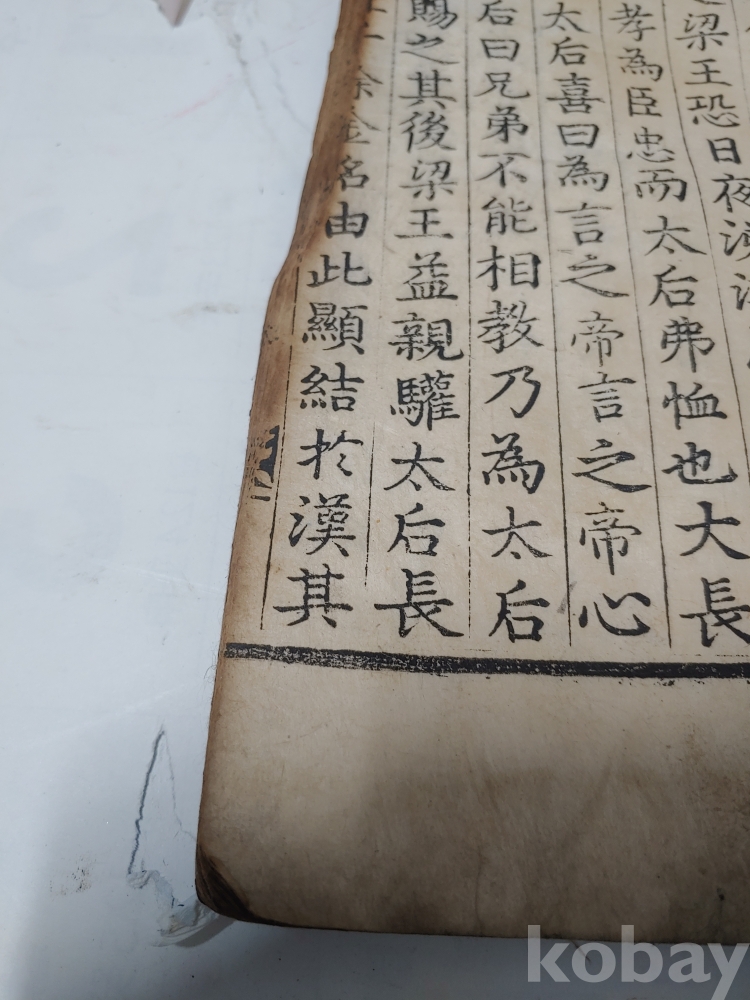 梁王恐日夜涕
孝為臣忠而太后弗恤也大長
太后喜曰為言之帝言之帝心
后曰兄弟不能相教乃為太后
賜之其後梁王益親驩太后長
餘金名由此顯結於漢其
kobay